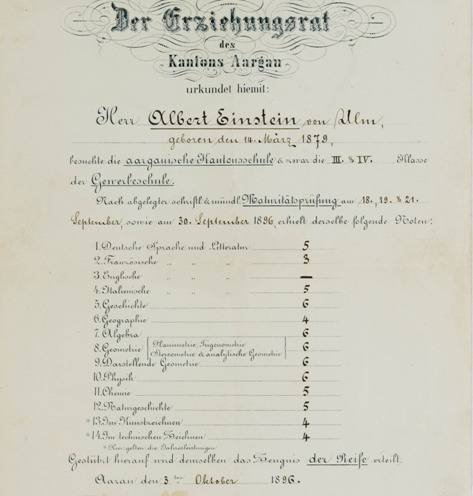 Der Erziehungsrat
des
Kantons Aargau
urkundet hiemit:
Herr Albert Einstein von Ulm,
geboren den 14. März 1879,
besuchte die aargauische Kantonsschule & zwar die III. & IV. Klasse
der Gewerbeschule.
Nach abgelegter schriftl. & mündl. Maturitätsprüfung am 18., 19. & 21.
September, sowie am 30. September 1896, erhielt derselbe folgende Noten:
1. Deutsche Sprache und Litteratur 5
2. Französische " " " 3
3. Englische " " " —
4. Italienische " " " 5
5. Geschichte 6
6. Geographie 4
7. Algebra 6
8. Geometrie Planimetrie, Trigonometrie 6
Stereometrie & analytische Geometrie
9. Darstellende Geometrie 6
10. Physik 6
11. Chemie 5
12. Naturgeschichte 5
* 13. Im Kunstzeichnen 4
* 14. Im technischen Zeichnen 4
* Hier gelten die Jahresleistungen.
Gestützt hierauf wird demselben das Zeugnis der Reife erteilt.
Aarau den 3ten Oktober 1896.